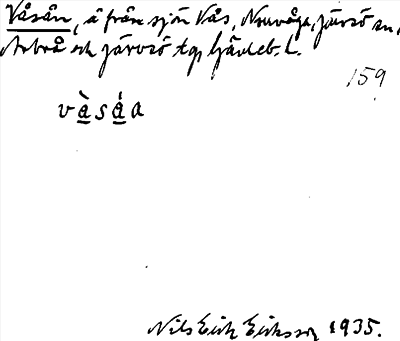 Våsån, å från sjön Vås, Norrvåga, Järvsö sn,
Arbrå och Järvsö tg, Gävleb. L.
159
v å̀ s ǻ a
Nils Erik Eriksson 1935.